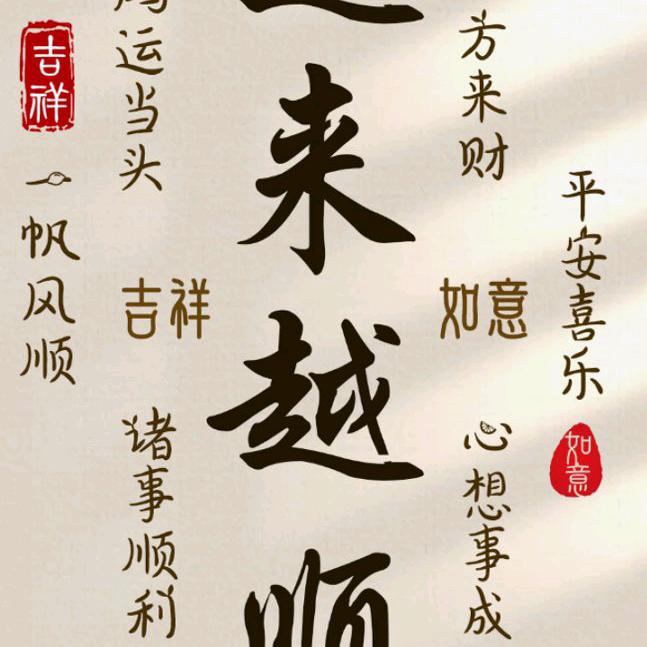 吉祥
一帆风顺
运当头
吉祥
诸事顺利
来越顺
方来财
如意
心想事成
平安喜乐
如意